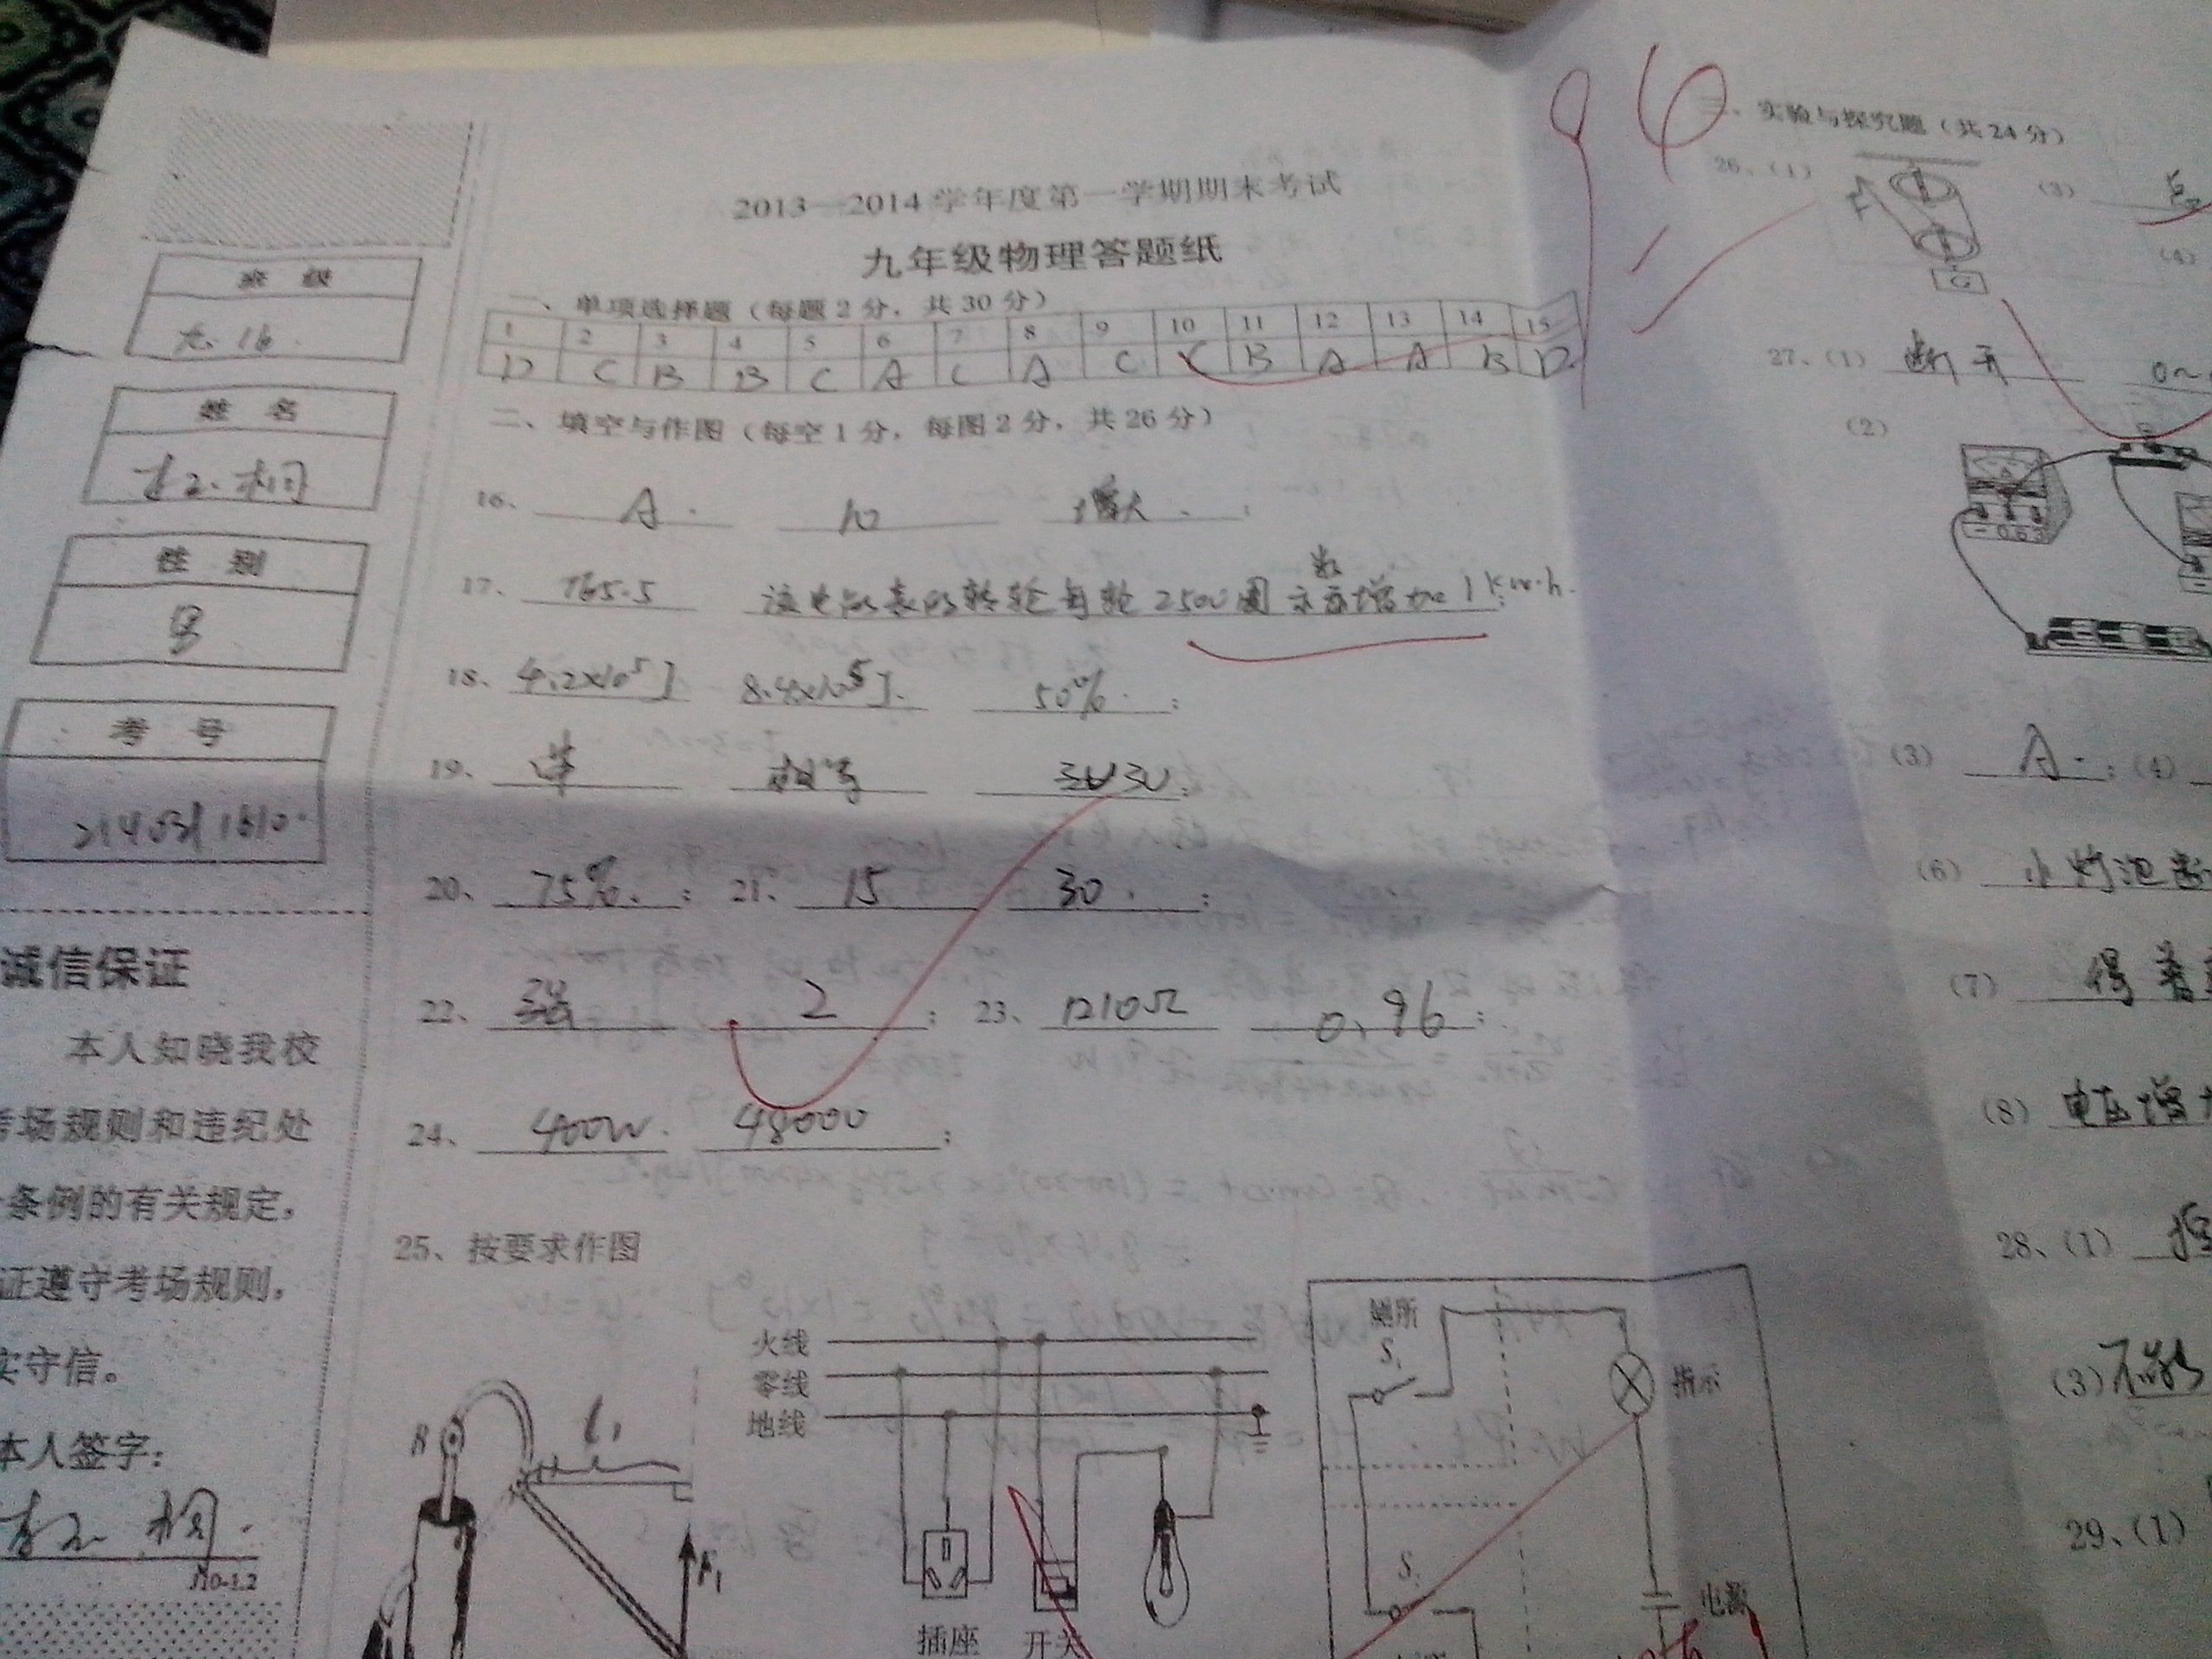 96
2013—2014学年度第一学期期末考试
九年级物理答题纸
班 级
九.16
姓 名
性 别
男
考 号
诚信保证
本人知晓我校
考场规则和违纪处
条例的有关规定,
证遵守考场规则,
实守信。
本人签字:
一、单项选择题(每题2分,共30分)
1 2 3 4 5 6 7 8 9 10 11 12 13 14 15
D C B B C A C A C C B A A B D
二、填空与作图(每空1分,每图2分,共26分)
16、 A. 10 增大.;
17、 765.5 该电能表的转轮每转2500圈示数增加1kw·h.
18、 4.2×10⁵J 8.4×10⁵J. 50%.;
19、 串 相等 3U;
20、 75%.; 21、 15 30.;
22、 强 2; 23、 1210Ω 0.96;
24、 400W. 48000;
25、按要求作图
B
l₁
F₁
火线
零线
地线
插座
开关
厕所
S₁
指示
S₂
电源
三、实验与探究题(共24分)
26、(1)
F
G
(3)
(4)
27、(1) 断开 0~
(2)
(3) A.;(4)
(6) 小灯泡
(7) 得着
(8) 电压增
28、(1)
(3)不能
29、(1)